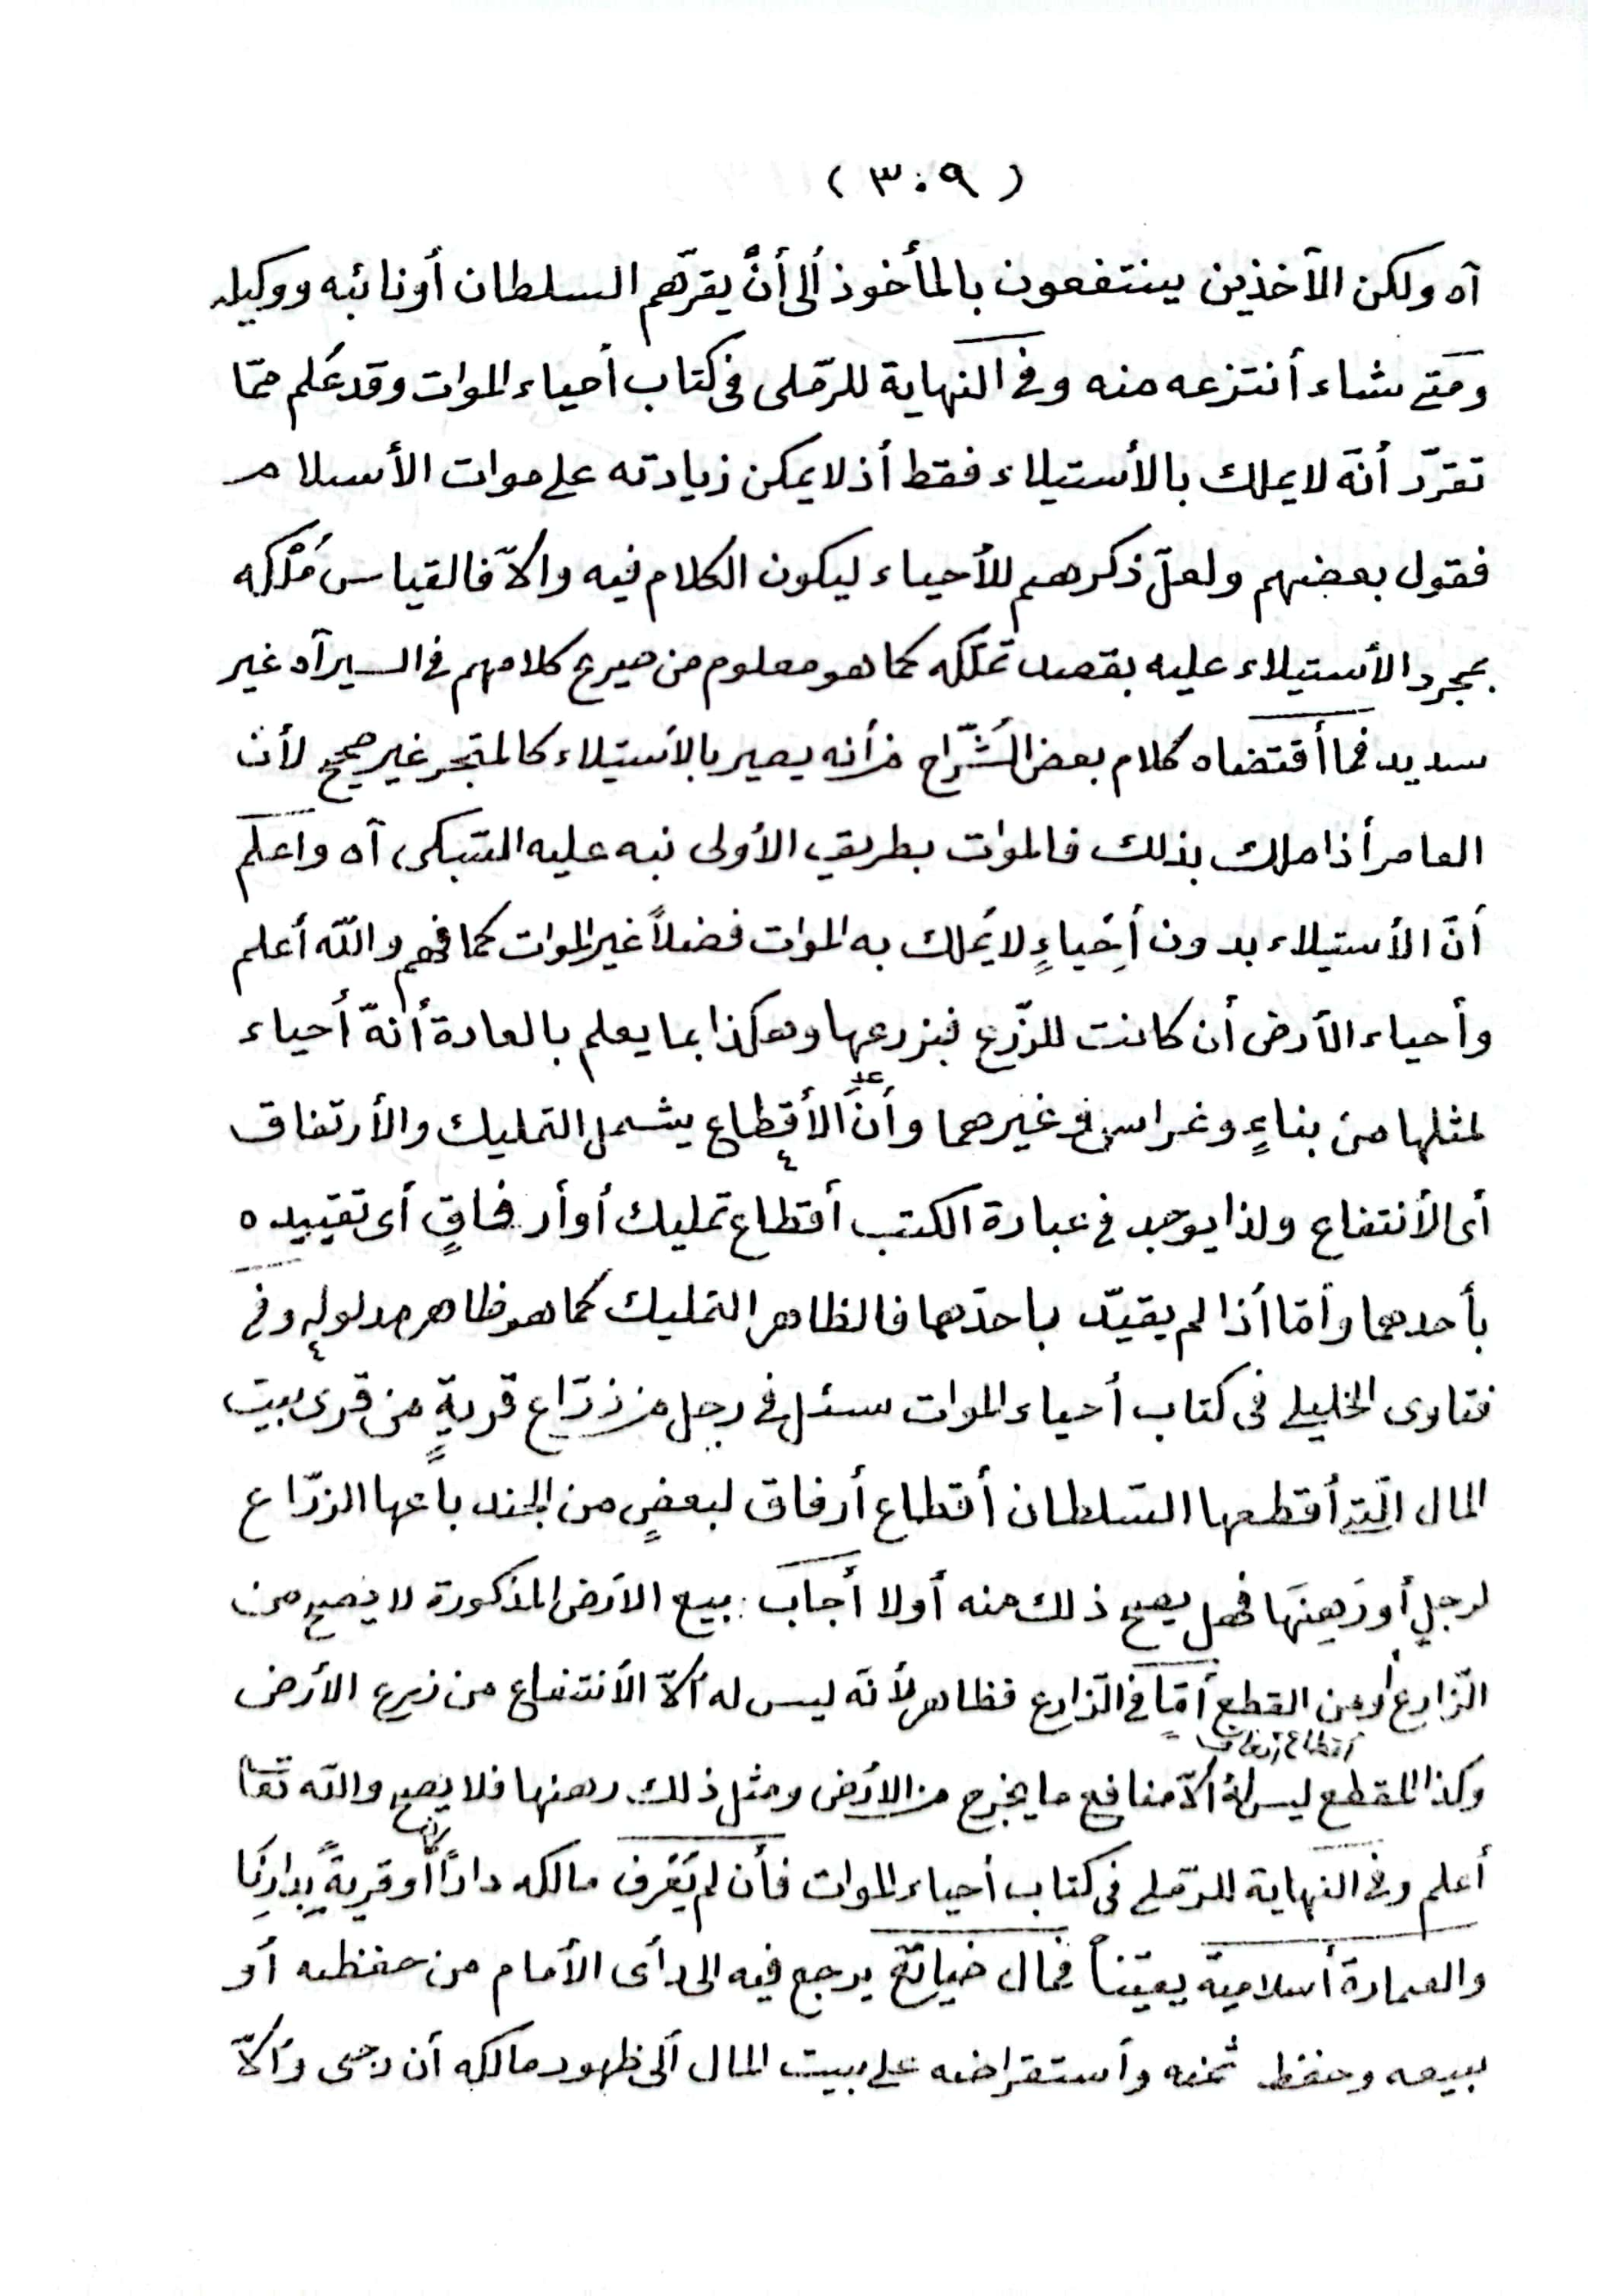 ( ٣٠٩ )
آه ولكن الآخذين ينتفعون بالمأخوذ ألى أنْ يقرّهم السلطان أونائبه ووكيله
ومتى شاء أنتزعه منه وفى النهاية للرّملى فى كتاب أحياء الموات وقد عُلم ممّا
تقرّر أنّه لايملك بالأستيلاء فقط أذلايمكن زيادته على موات الأسلام
فقول بعضهم ولعلّ ذكرهم للأحياء ليكون الكلام فيه والّا فالقياس مُلْكه
بمجرد الأستيلاء عليه بقصد تملّكه كما هو معلوم من صريح كلامهم فى السير آه غير
سديد فما أقتضاه كلام بعض الشّراح من أنه يصير بالأستيلاء كالمتحجر غير صحيح لأن
العامر أذا ملك بذلك فالموات بطريق الأولى نبه عليه السّبكى آه وأعلم
أنّ الأستيلاء بدون أِحْياءٍ لايُملك به الموات فضلاً غير الموات كما فهم والله أعلم
وأحياء الأرض أن كانت للزّرع فبزرعها وهكذا بما يعلم بالعادة أنّه أحياء
لمثلها من بناءٍ وغراس وغيرهما وأنّ الأقطاع يشمل التمليك والأرتفاق
أى الأنتفاع ولذا يوجد فى عبارة الكتب أقطاع تمليك أو أرفاقٍ أى تقييده
بأحدهما وأمّا أذا لم يقيّد باحدهما فالظاهر التمليك كما هو ظاهر مدلوله وفى
فتاوى الخليلى فى كتاب أحياء الموات سئل فى رجل من زرّاع قريةٍ من قرى بيت
المال الّتى أقطعها السّلطان أقطاع أرفاق لبعضٍ من الجند باعها الزرّاع
لرجلٍ أورَهِنَها فهل يصح ذلك منه أولا أجاب : بيع الأرض المذكورة لايصح من
الزّارع أومن المقطع أمّا فى الزّارع فظاهر لأنّه ليس له ألّا الأنتفاع من زرع الأرض
أقطاع أرفاق
وكذا المقطع ليس له ألّا منافع ما يخرج من الأرض ومثل ذلك رهنها فلا يصح والله تعا
أعلم وفى النهاية للرّملى فى كتاب أحياء الموات فأن لم يُعْرف مالكه داراً أوقريةً بدارنا
والعمارة أسلامية يقيناً فمال ضائع يرجع فيه الى رأى الأمام من حفظه أو
بيعه وحفظ ثمنه وأستقراضه على بيت المال ألى ظهور مالكه أن رجى وألّا